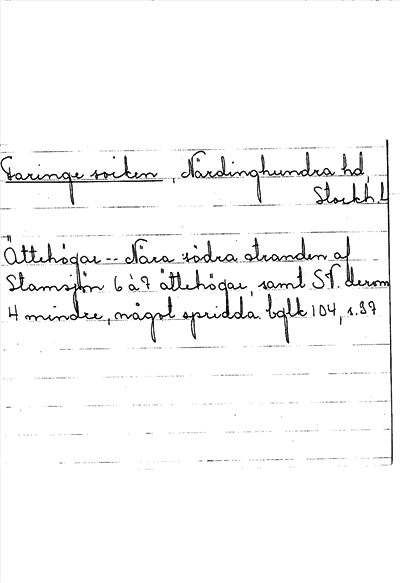 Faringe socken, Närdinghundra hd,
Stockh. L
Ättehögar -- Nära södra stranden af
Stamsjön 6 à 7 ättehögar, samt SV. derom
4 mindre, något spridda. bglk 104, s. 37